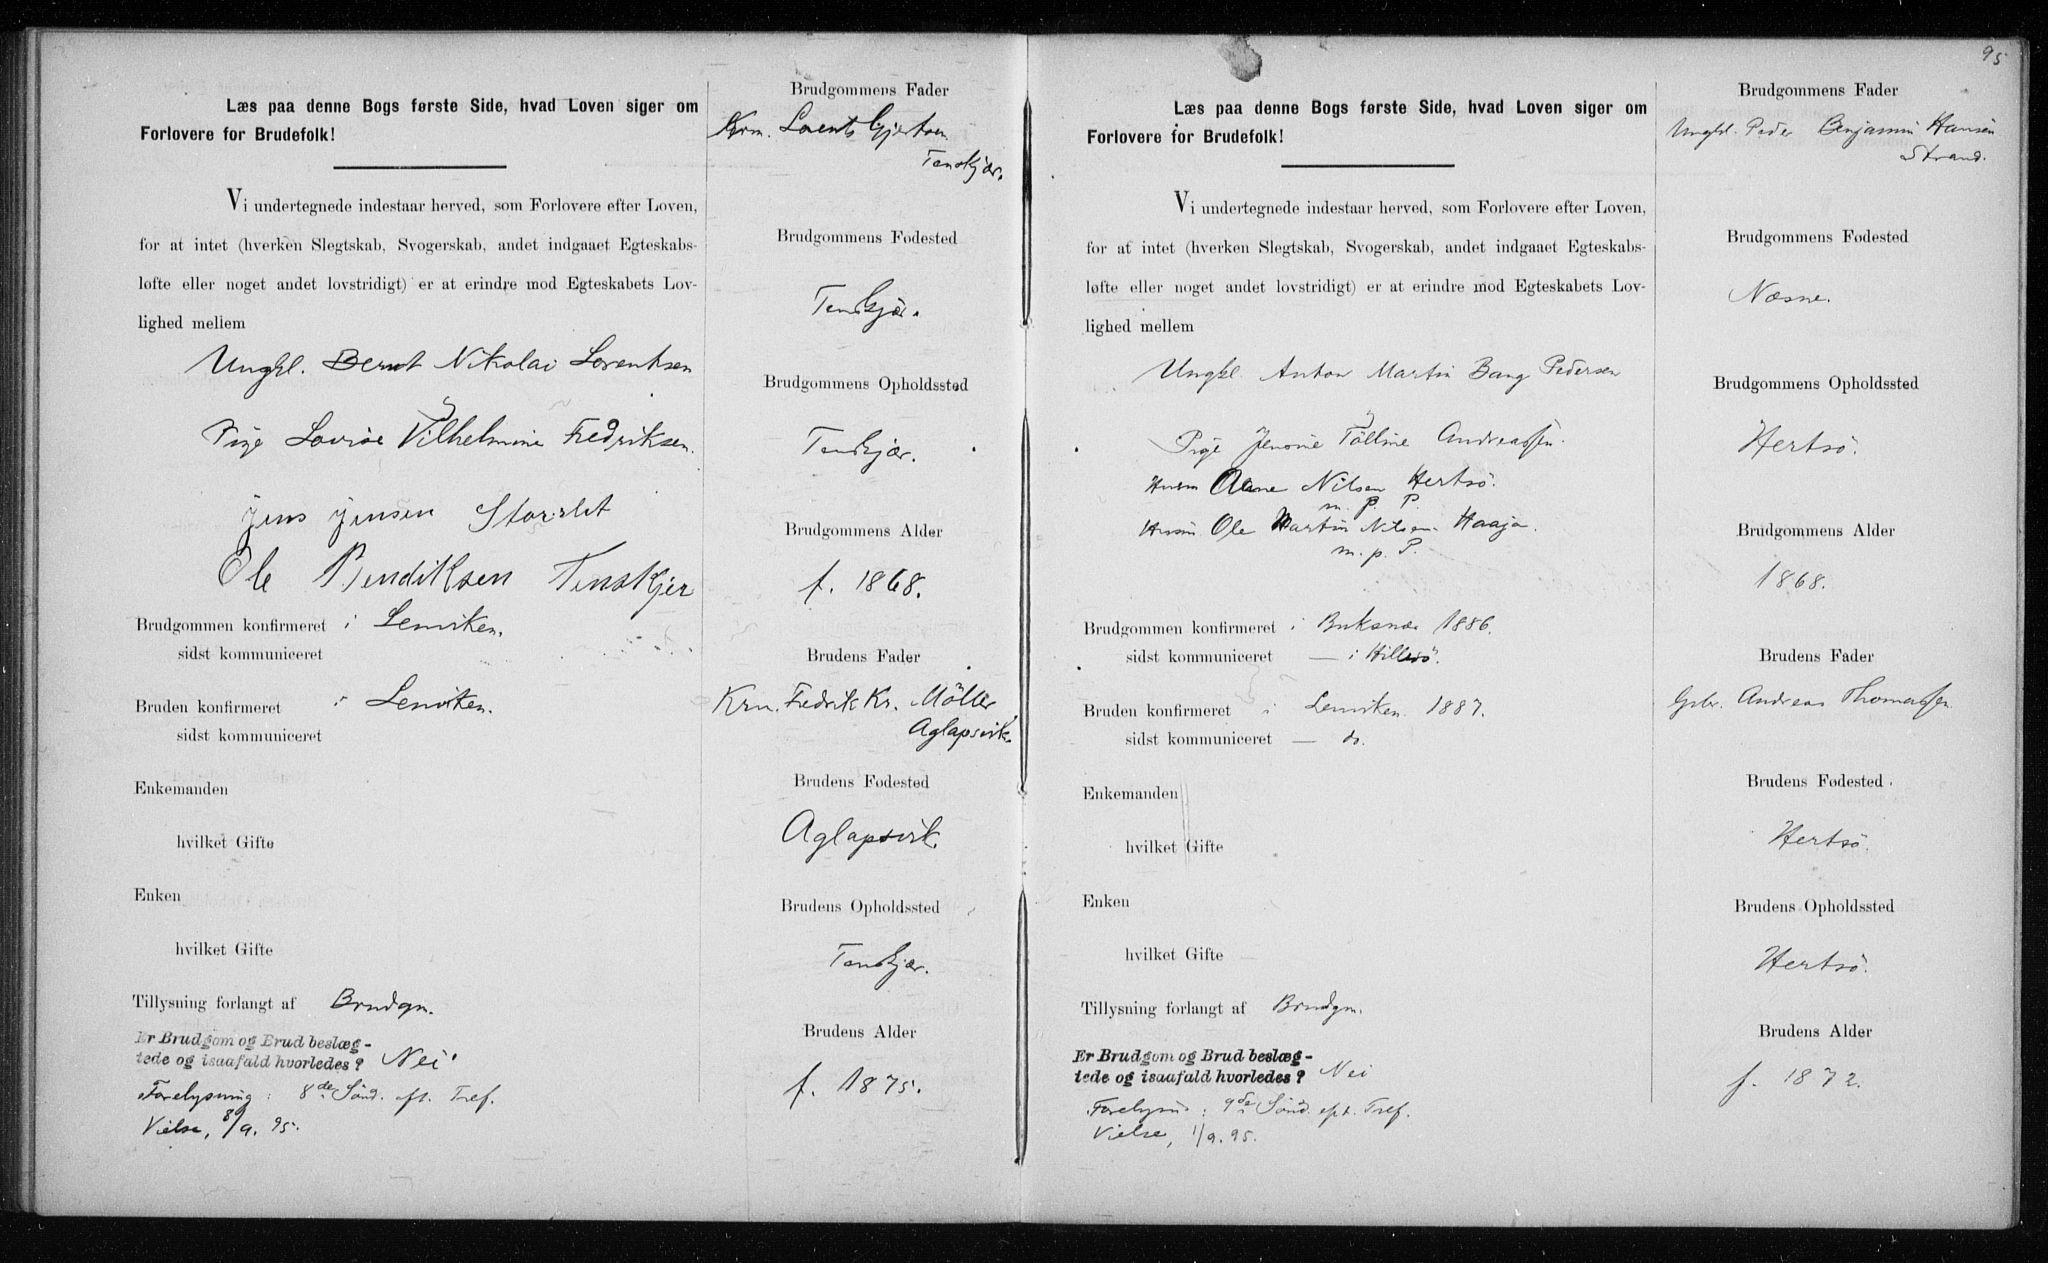 Læs paa denne Bogs første Side, hvad Loven siger om
Forlovere for Brudefolk!
Vi undertegnede indestaar herved, som Forlovere efter Loven,
for at intet (hverken Slegtskab, Svogerskab, andet indgaaet Egteskabs-
løfte eller noget andet lovstridigt) er at erindre mod Egteskabets Lov-
lighed mellem
Ungkl. Bernt Nikolai Lorentsen
Pige Lovise Vilhelmine Fredriksen.
Jens Jensen Storslet
Ole Bendiksen Tenskjer
Brudgommen konfirmeret i Lenviken.
sidst kommuniceret
Bruden konfirmeret i Lenviken.
sidst kommuniceret
Enkemanden
hvilket Gifte
Enken
hvilket Gifte
Tillysning forlangt af Brudgm.
Er Brudgom og Brud beslæg-
tede og isaafald hvorledes? Nei
Forelysning: 8de Sönd. eft. Tref.
Vielse, 8/9. 95.
Brudgommens Fader
Krm. Lorents Gjertsen
Tenskjær.
Brudgommens Fødested
Tenskjær.
Brudgommens Opholdssted
Tenskjær.
Brudgommens Alder
f. 1868.
Brudens Fader
Krm. Fredrik Kr. Möller
Aglapsvik.
Brudens Fødested
Aglapsvik.
Brudens Opholdssted
Tenskjær.
Brudens Alder
f. 1875.
95
Læs paa denne Bogs første Side, hvad Loven siger om
Forlovere for Brudefolk!
Vi undertegnede indestaar herved, som Forlovere efter Loven,
for at intet (hverken Slegtskab, Svogerskab, andet indgaaet Egteskabs-
løfte eller noget andet lovstridigt) er at erindre mod Egteskabets Lov-
lighed mellem
Ungkl. Anton Martin Bang Pedersen
Pige Jensine Tölline Andreassen.
Husm Ane Nilsen Hertsö.
m. p. P.
Husm. Ole Martin Nilsen Haaja.
m. p. P.
Brudgommen konfirmeret i Buksnæs 1886.
sidst kommuniceret — i Hillesö.
Bruden konfirmeret i Lenviken 1887.
sidst kommuniceret — do.
Enkemanden
hvilket Gifte
Enken
hvilket Gifte
Tillysning forlangt af Brudgm.
Er Brudgom og Brud beslæg-
tede og isaafald hvorledes? Nei
Forelysn: 9de Sönd. eft. Tref.
Vielse, 1/9. 95.
Brudgommens Fader
Ungkl. Peder Benjamin Hansen
Strand.
Brudgommens Fødested
Næsne.
Brudgommens Opholdssted
Hertsö.
Brudgommens Alder
1868.
Brudens Fader
Gbr. Andreas Thomassen
Brudens Fødested
Hertsö.
Brudens Opholdssted
Hertsö.
Brudens Alder
f. 1872.